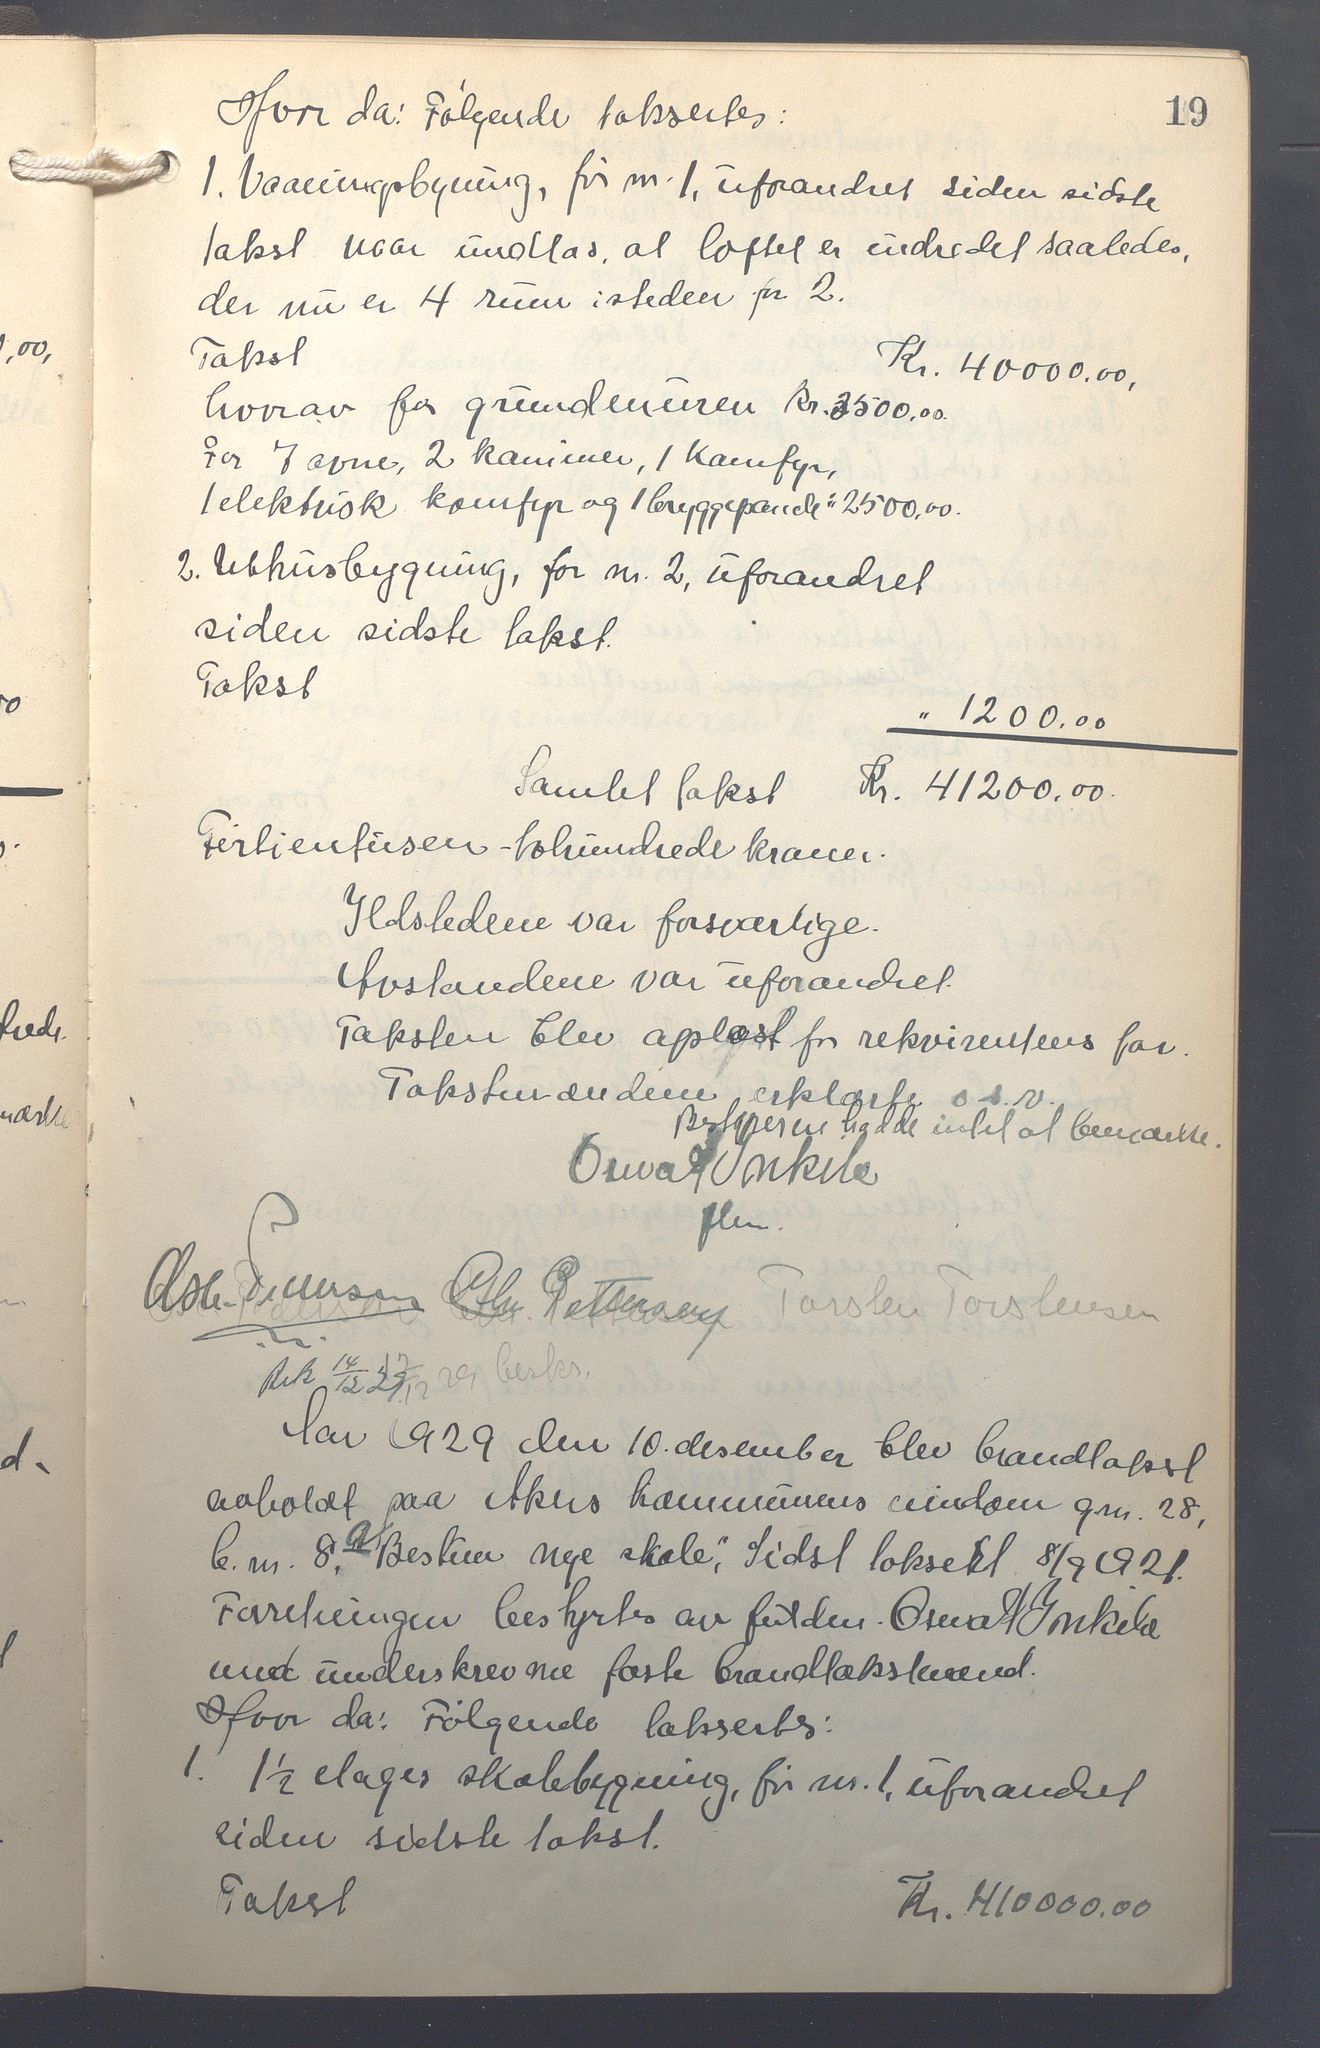 19
Hvor da: Følgende taksertes:
1. Vaaningsbygning, før nr. 1, uforandret siden sidste
takst naar undtas, at loftet er indredet saaledes,
der nu er 4 rum isteden for 2.
Takst Kr. 40000.00,
hvorav for grundmuren Kr. 3500,00.
For 7 ovne, 2 kaminer, 1 Komfyr,
1 elektrisk komfyr og 1 bryggepande " 2500,00.
2. Uthusbygning, før nr. 2, uforandret
siden sidste takst.
Takst
" 1200.00
Samlet takst Kr. 41200.00.
Førtientusen-tohundrede kroner.
Ildstedene var forsvarlige.
Avstandene var uforandret.
Taksten blev oplæst for rekvirentens for.
Takstmændene erklærte o.s.v.
Bestyreren hadde intet at bemærke.
Pettersen Torsten Torstensen
14/12 besks.
Aar 1929 den 10. desember blev brandtakst
avholdt paa Akers kommunens eindom g.nr. 28,
b.nr. 8, a "Bestum nye skole", Sidst taksert 8/9 1921.
Forretningen bestyrtes av fuldm.
med underskrevne faste brandtakstmænd.
Hvor da: Følgende taksertes:
1. 1½ etages skolebygning, før nr. 1, uforandret
siden sidste takst.
Takst Kr. 410000.00